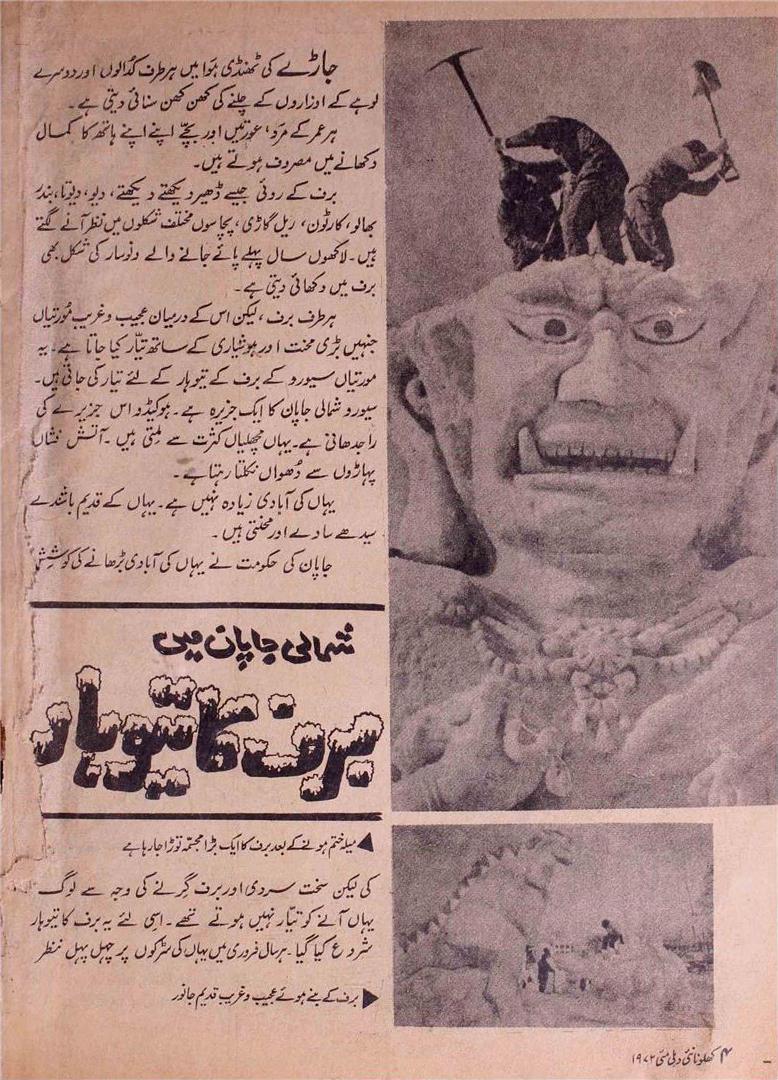 جاڑے کی ٹھنڈی ہوا میں ہر طرف کدالوں اور دوسرے
لوہے کے اوزاروں کے چلنے کی کھن کھن سنائی دیتی ہے۔
ہر عمر کے مرد، عورتیں اور بچّے اپنے اپنے ہاتھ کا کمال
دکھانے میں مصروف ہوتے ہیں۔
برف کے روئی جیسے ڈھیر دیکھتے دیکھتے، دیو، دیوتا، بندر
بھالو، کارٹون، ریل گاڑی، پچاسوں مختلف شکلوں میں نظر آنے لگتے
ہیں۔ لاکھوں سال پہلے پائے جانے والے ڈنوسار کی شکل بھی
برف میں دکھائی دیتی ہے۔
ہر طرف برف، لیکن اس کے درمیان عجیب و غریب مُورتیاں
جنہیں بڑی محنت اور ہوشیاری کے ساتھ تیّار کیا جاتا ہے۔ یہ
مورتیاں سیورو کے برف کے تیوہار کے لئے تیار کی جاتی ہیں۔
سیورو شمالی جاپان کا ایک جزیرہ ہے۔ ہوکیڈو اس جزیرے کی
راجدھانی ہے۔ یہاں مچھلیاں کثرت سے ملتی ہیں۔ آتش فشاں
پہاڑوں سے دُھواں نکلتا رہتا ہے۔
یہاں کی آبادی زیادہ نہیں ہے۔ یہاں کے قدیم باشندے
سیدھے سادے اور محنتی ہیں۔
جاپان کی حکومت نے یہاں کی آبادی بڑھانے کی کوشش
شمالی جاپان میں
برف کا تیوہار
میلہ ختم ہونے کے بعد برف کا ایک بڑا مجسّمہ توڑا جا رہا ہے
کی لیکن سخت سردی اور برف گرنے کی وجہ سے لوگ
یہاں آنے کو تیّار نہیں ہوتے تھے۔ اسی لئے یہ برف کا تیوہار
شروع کیا گیا۔ ہر سال فروری میں یہاں کی سڑکوں پر چہل پہل نظر
برف کے بنے ہوئے عجیب و غریب قدیم جانور
۴ کھلونا نئی دہلی مئی ۱۹۷۲